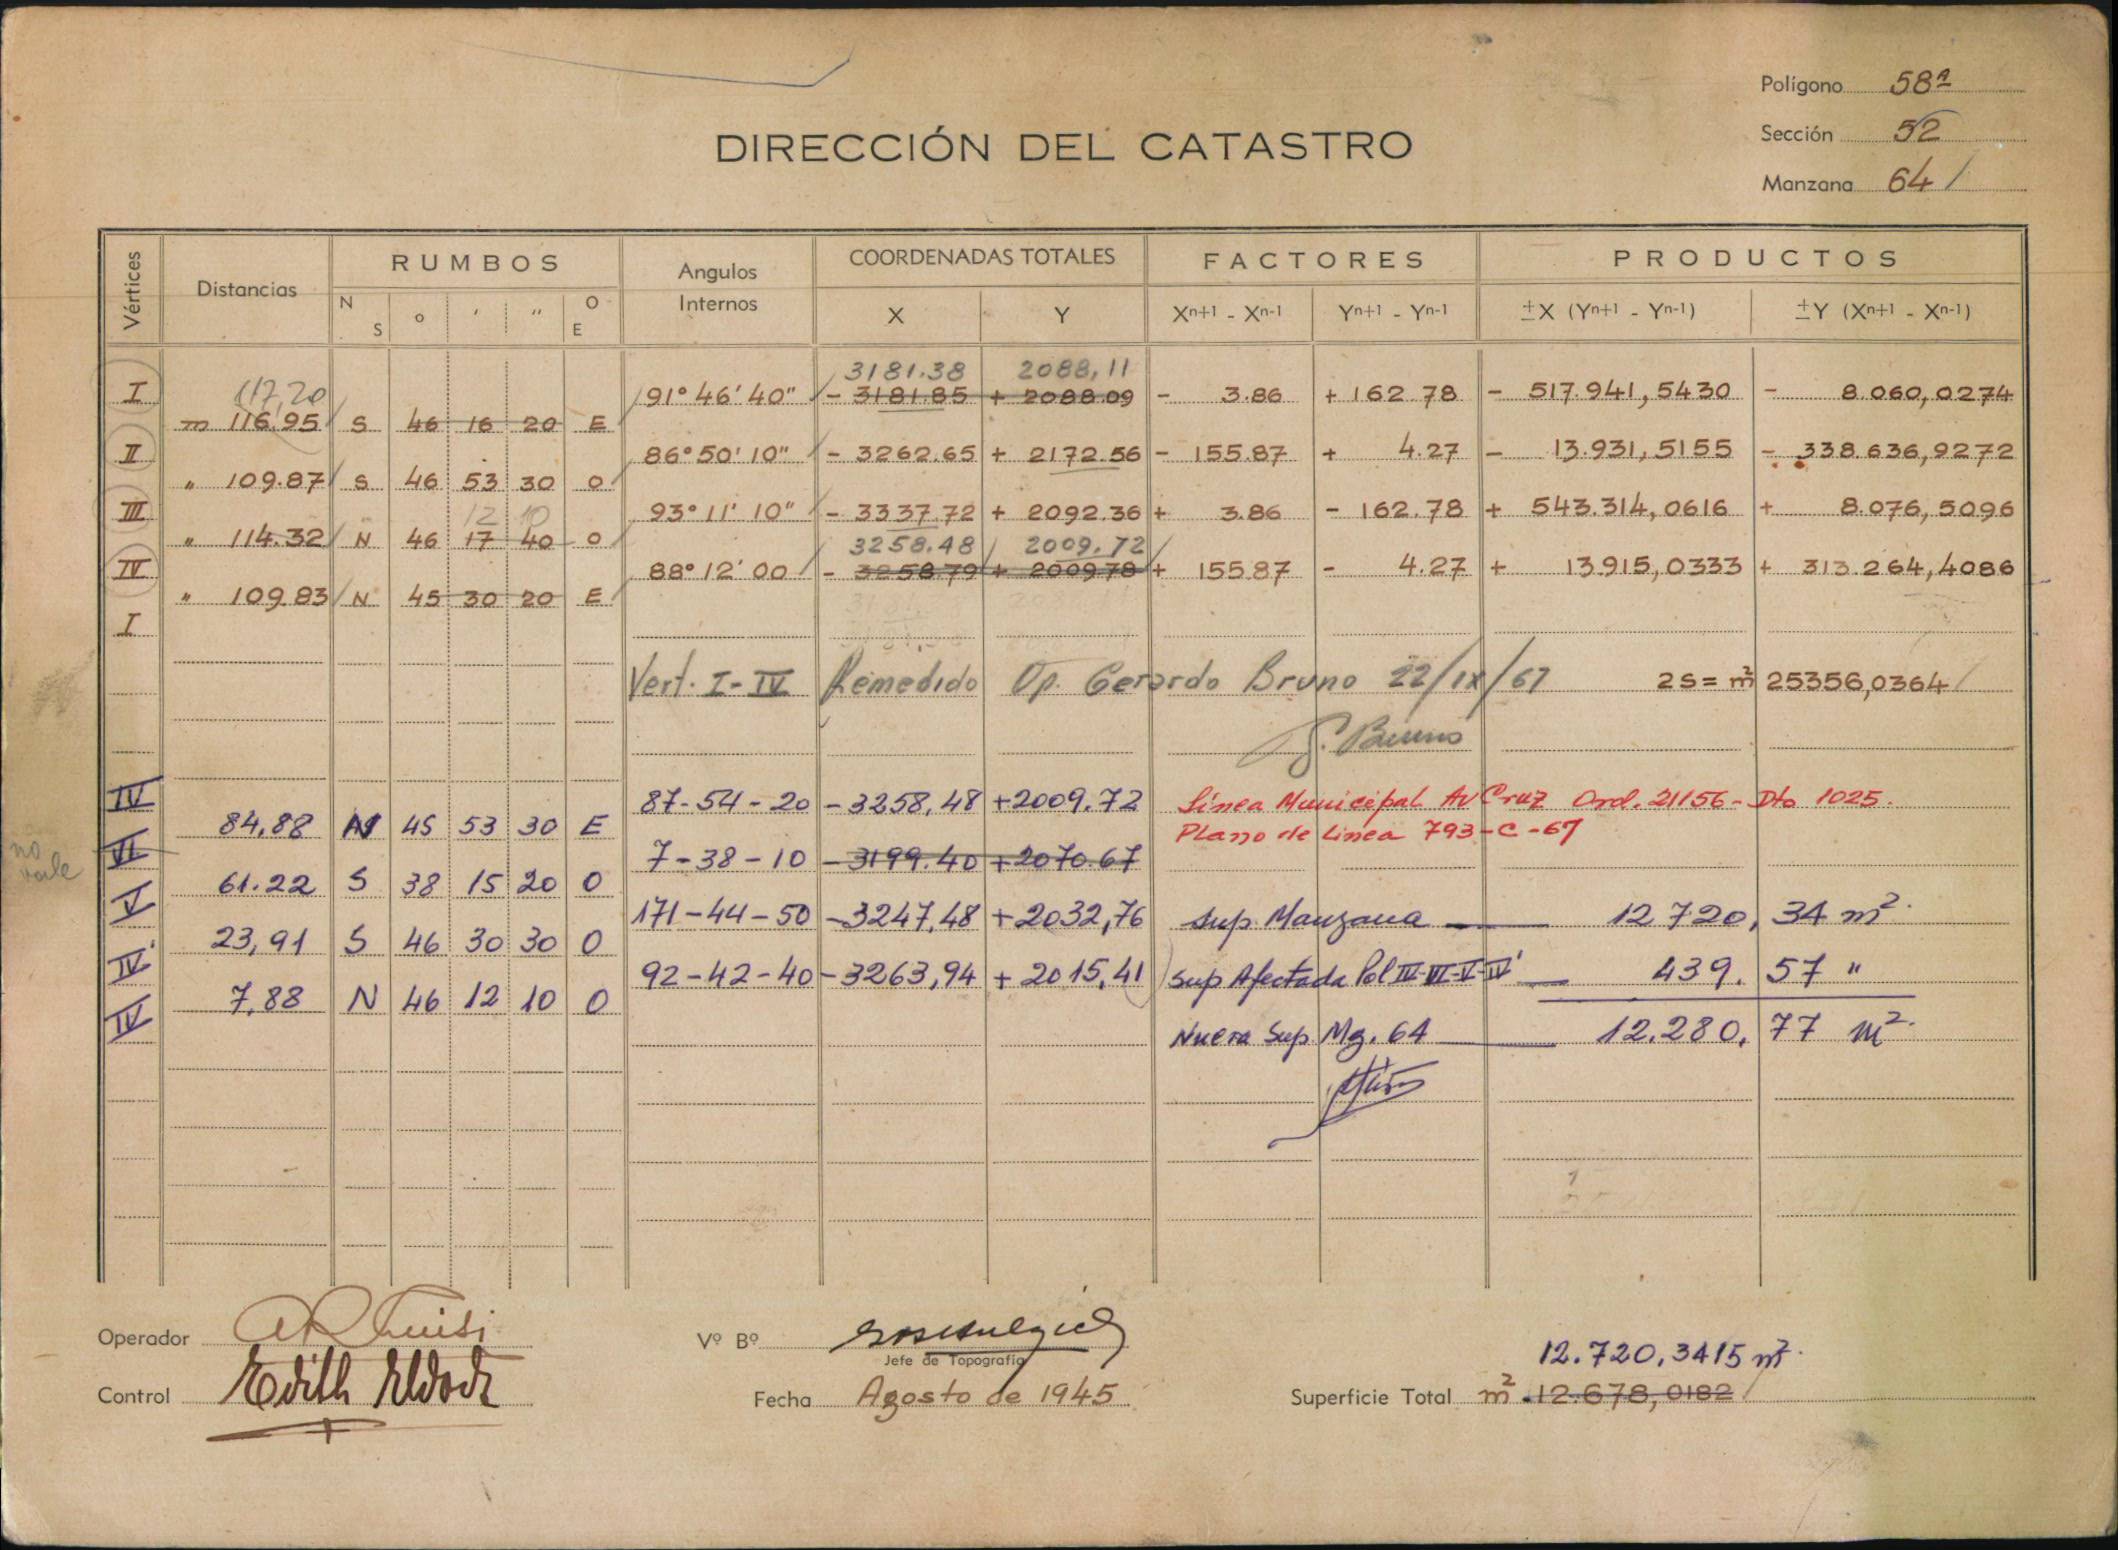 Polígono 58ª
Sección 52
Manzana 64 /
DIRECCIÓN DEL CATASTRO
Vértices Distancias RUMBOS Angulos Internos COORDENADAS TOTALES FACTORES PRODUCTOS
N S ° ' " O E X Y Xⁿ⁺¹ - Xⁿ⁻¹ Yⁿ⁺¹ - Yⁿ⁻¹ ±X (Yⁿ⁺¹ - Yⁿ⁻¹) ±Y (Xⁿ⁺¹ - Xⁿ⁻¹)
3181.38 2088,11
I 91° 46' 40" - 3181.85 + 2088.09 - 3.86 + 162.78 - 517.941,5430 - 8.060,0274
117,20
m 116.95 S 46 16 20 E
II 86° 50' 10" - 3262.65 + 2172.56 - 155.87 + 4.27 - 13.931,5155 - 338.636,9272
" 109.87 S 46 53 30 O
III 93° 11' 10" - 3337.72 + 2092.36 + 3.86 - 162.78 + 543.314,0616 + 8.076,5096
12 10
" 114.32 N 46 17 40 O
3258.48 2009.72
IV 88° 12' 00 - 3258.79 + 2009.78 + 155.87 - 4.27 + 13.915,0333 + 313.264,4086
" 109.83 N 45 30 20 E
I
Vert. I - IV Remedido Op. Gerardo Bruno 22/IX/67 2S = m² 25356,0364
G. Bruno
IV 87-54-20 -3258,48 +2009.72 Línea Municipal Av Cruz Ord. 21156 - Dto 1025.
84,88 N 45 53 30 E Plano de Linea 793-C-67
no vale
VI 7-38-10 -3199.40 +2070.67
61.22 S 38 15 20 O
V 171-44-50 -3247,48 +2032,76 Sup. Manzana 12 720, 34 m².
23,91 S 46 30 30 O
IV' 92-42-40 -3263,94 +2015,41 Sup Afectada Pol IV-VI-V-IV' 439. 57 "
7,88 N 46 12 10 O
IV Nueva Sup. Mz. 64 12.280, 77 m².
Operador
Vº Bº
Jefe de Topografía
12.720,3415 m².
Control Edith
Fecha Agosto de 1945
Superficie Total m² 12.678,0182